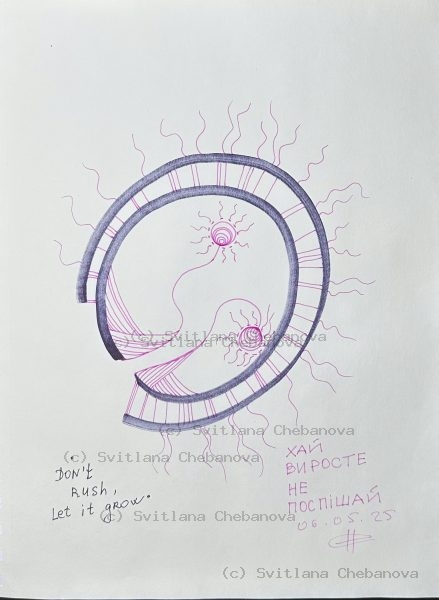 (c) Svitlana Chebanova
(c) Svitlana Chebanova
(c) Svitlana Chebanova
(c) Svitlana Chebanova
DON't
RUSH,
Let it grow.
(c) Svitlana Chebanova
ХАЙ
ВИРОСТЕ
НЕ
ПОСПІШАЙ
06.05.25
(c) Svitlana Chebanova